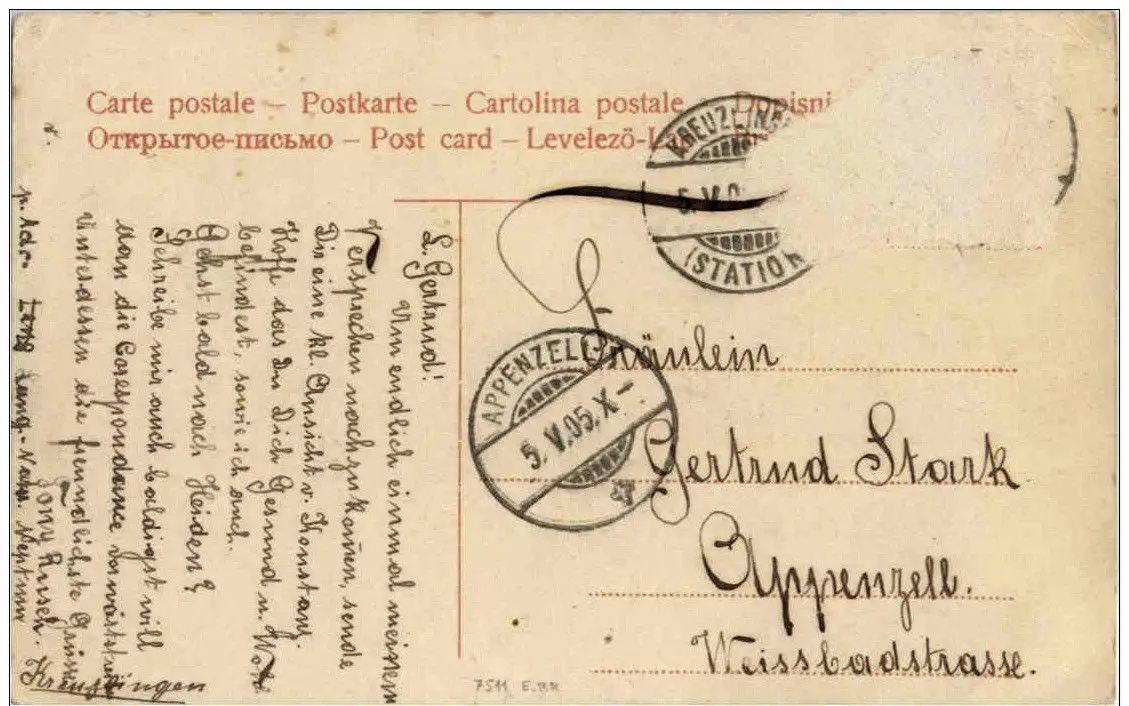 Carte postale – Postkarte – Cartolina postale Dopisni
Открытое-письмо – Post card – Levelezö-L
KREUZLINGEN
5. V. 0
(STATION
APPENZELL
5. V. 05. X –
Fräulein
Gertrud Stark
Appenzell.
Weissbadstrasse.
L. Gertrud!
Um endlich einmal meinem
Versprechen nachzukom̄en, sende
Dir eine kl. Ansicht v. Konstanz.
Hoffe das Du Dich Gesund u. Wohl
befindest, sowie ich auch.
Gehst bald nach Heiden?
Schreibe mir auch baldigst will
dan die Corespondance
Unterdessen die freundlichste Grüsse
Tony Rusch.
p. Adr. Lang-Neptun
Kreuzlingen
7511